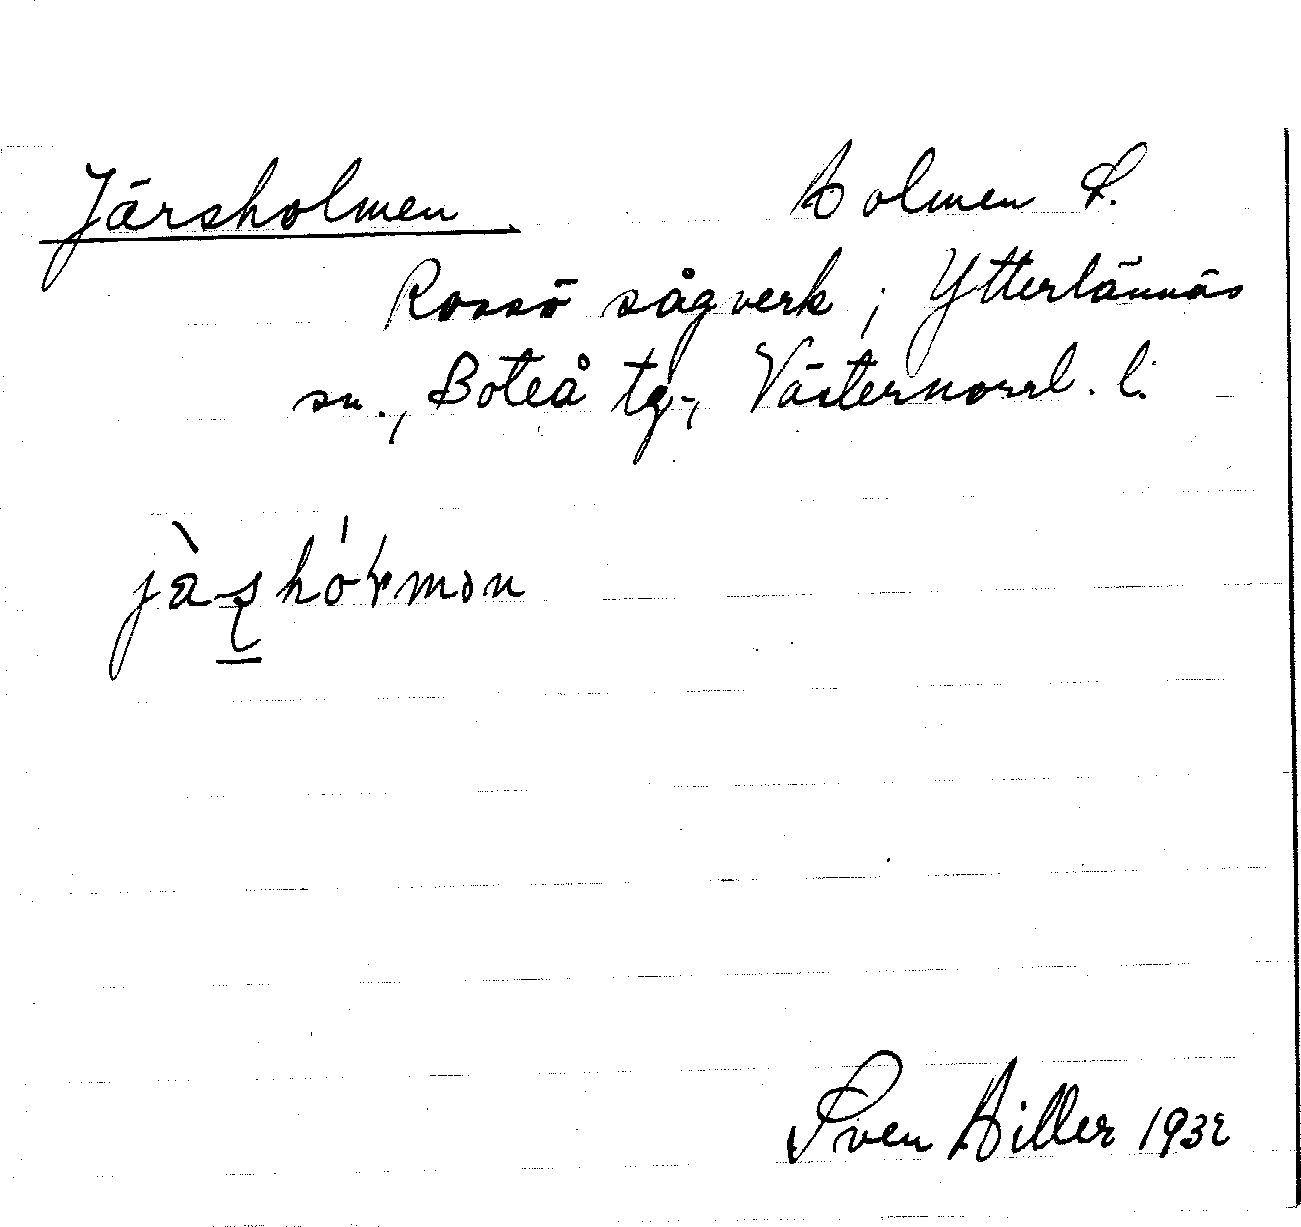 Järsholmen Holmen S.
Rossö sågverk; Ytterlännäs
sn., Boteå tg., Västernorrl. l.
Sven Hiller 1932